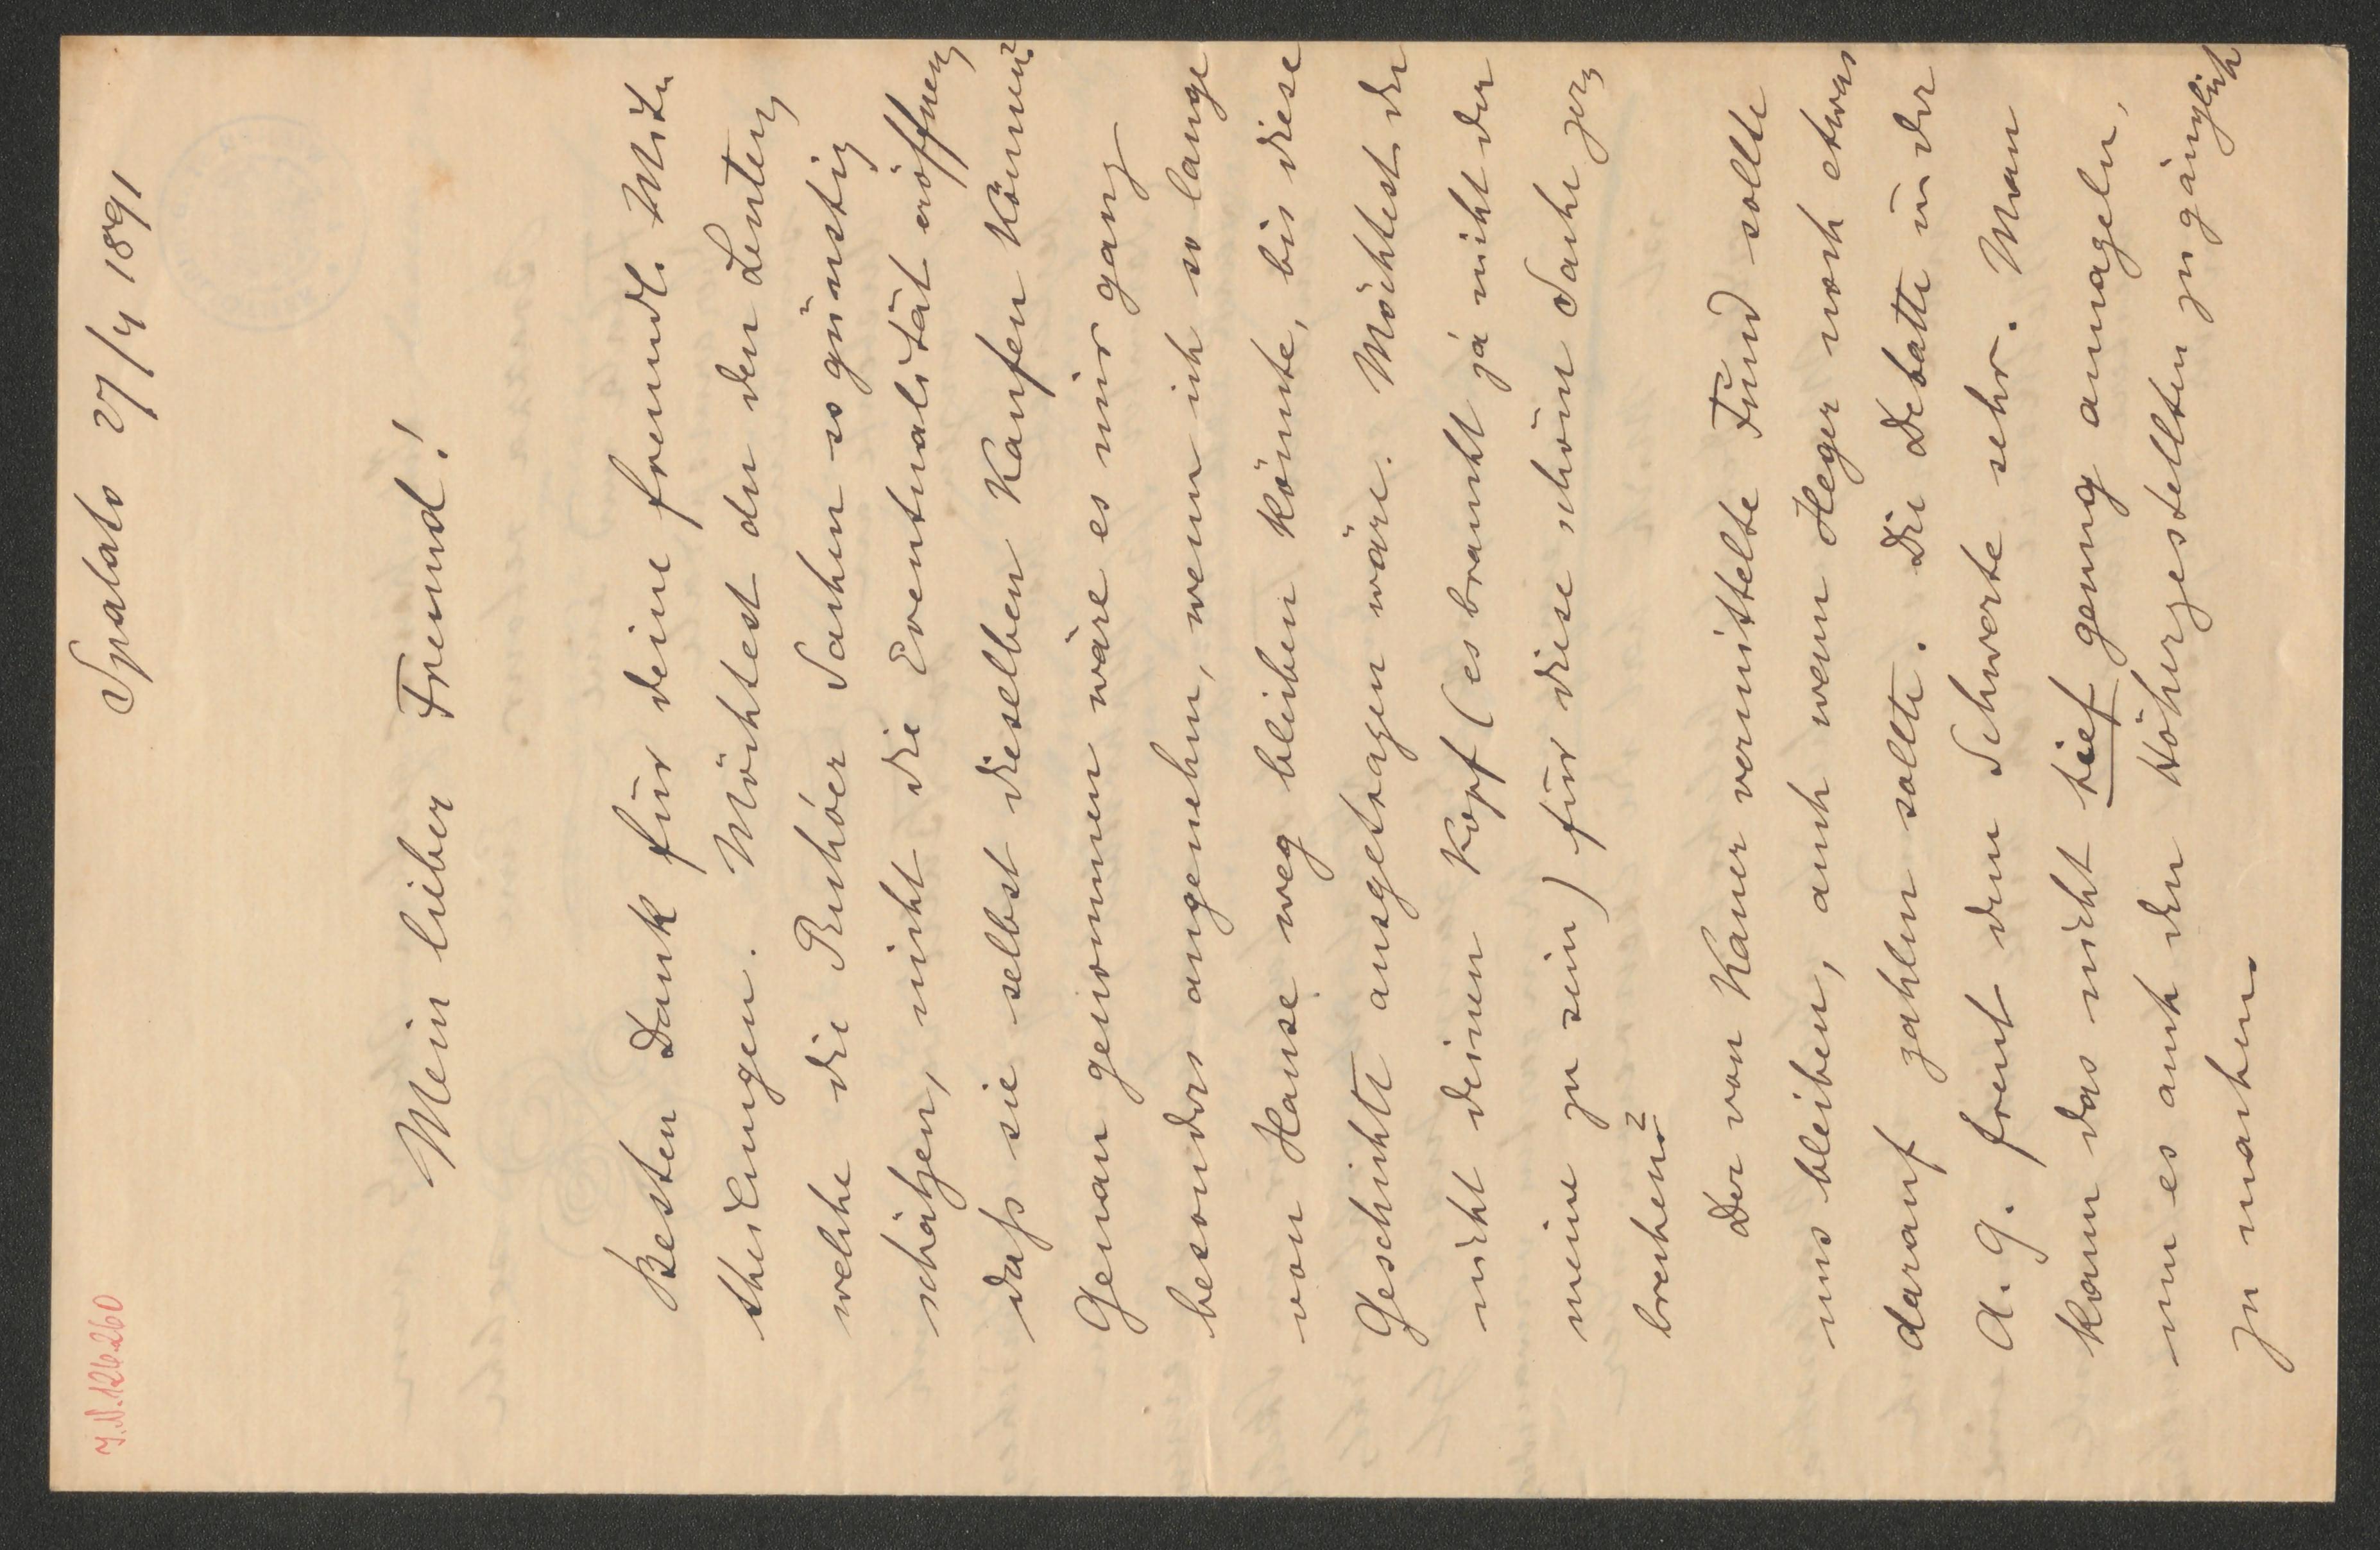 J.N. 126.260
Spalato 27/4 1891
Mein lieber Freund!
Besten Dank für deine freundl. Mit-
theilungen. Möchtest du den Leuten,
welche die Sachen so günstig
schätzen, nicht die Eventualität eröffnen,
daß sie selbst dieselben kaufen können?
Genau genommen wäre es mir ganz
besonders angenehm, wenn ich so lange
von Hause weg bleiben könnte, bis diese
Geschichte ausgetragen wäre. Möchtest du
nicht deinen Kopf (es braucht ja nicht der
meine zu sein) für diese schöne Sache zer-
brechen?
Der von Kaner vermittelte Fund sollte
uns bleiben, auch wenn Heger noch etwas
darauf zahlen sollte. Die Debatte in der
A. G. freut den Schwerte sehr. Man
kann das nicht tief genug annageln,
um es auch den Höhergestellten zugänglich
zu machen.